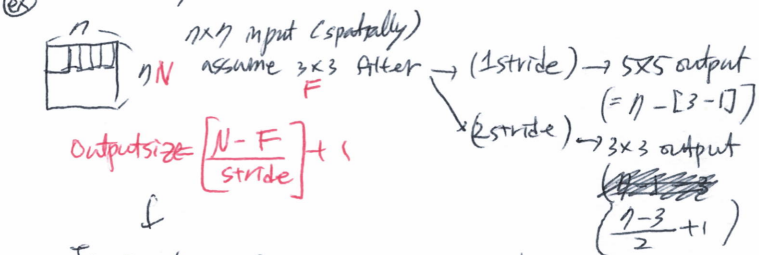 ex
n
n×n input (spatially)
n N assume 3×3 filter → (1stride) → 5×5 output
F
(= n - [3-1])
(2stride) → 3×3 output
Outputsize = [N-F / stride] + 1
(n-3 / 2 + 1)